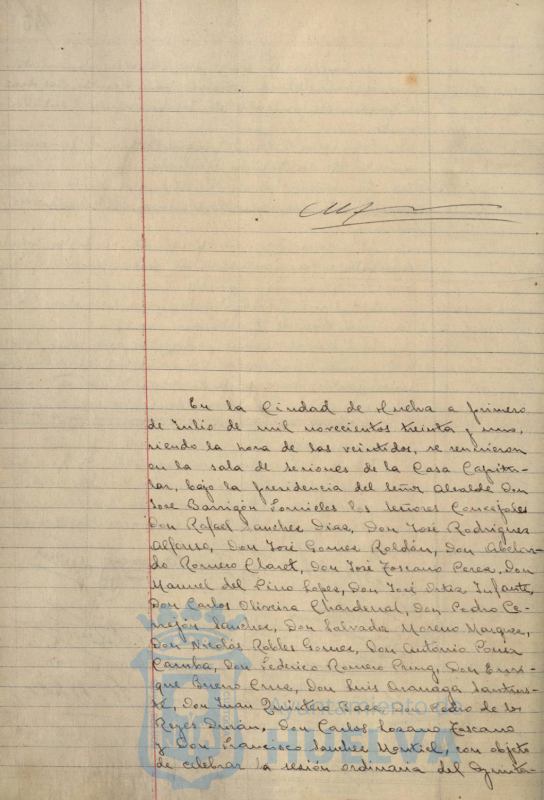 En la Ciudad de Huelva a primero
de Julio de mil novecientos treinta y uno,
siendo la hora de las veintidos, se reunieron
en la sala de sesiones de la Casa Capitu-
lar, bajo la presidencia del Señor Alcalde Don
José Barrigón Fornieles los Señores Concejales
Don Rafael Sanchez Diaz, Don José Rodriguez
Alfonso, Don José Gomez Roldán, Don Abelar-
do Romero Claret, Don José Toscano Perez, Don
Manuel del Pino Lopez, Don José Ortiz Infante,
Don Carlos Oliveira Chardenal, Don Pedro Ce-
rrejón Sanchez, Don Salvador Moreno Marquez,
Don Nicolás Robles Gomez, Don Antonio Ponce
Camba, Don Federico Romero, Don Enri-
que Bueno Cruz, Don Luis
Don Juan Quintero Baez, D. Pedro de los
Reyes Durán, Don Carlos Lozano Toscano
y Don Francisco Sanchez Montiel, con objeto
de celebrar la sesión ordinaria del Ayunta-
Ayuntamiento de
HUELVA